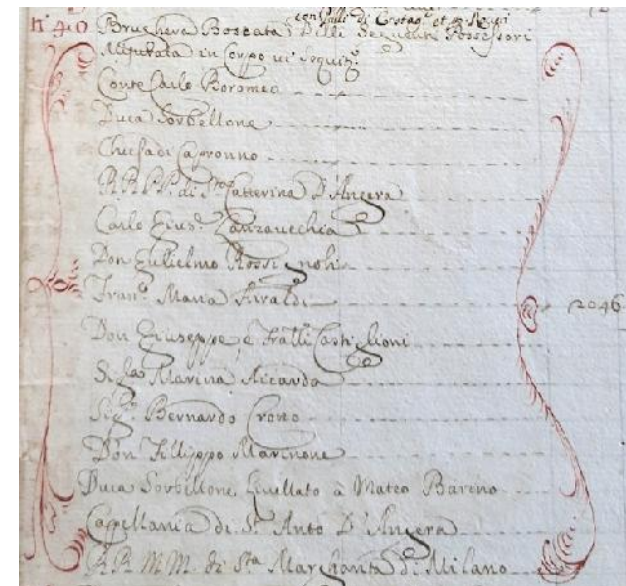 n.° 40 Brughera Boscata Delli Seguenti Possessori
Misurata in Corpo
Conte Carlo Boromeo
Duca Sorbellone
Chiesa di Capronno
R.R. P.P. di Sta Catterina D'Angera
Carlo Gius.e Zanzavecchia
Don Gulielmo Rossignoli
Fran.o Maria
2046
Don Giuseppe e Fratelli Castiglioni
Sig.ra Marina Ricarda
Sig.r Bernardo Crono
Don Fillippo Marinone
Duca Sorbellone livellato à Mateo Barino
Cappellania di S.t Anto D'Angera
R.R. M.M. di Sta Margharita di Milano